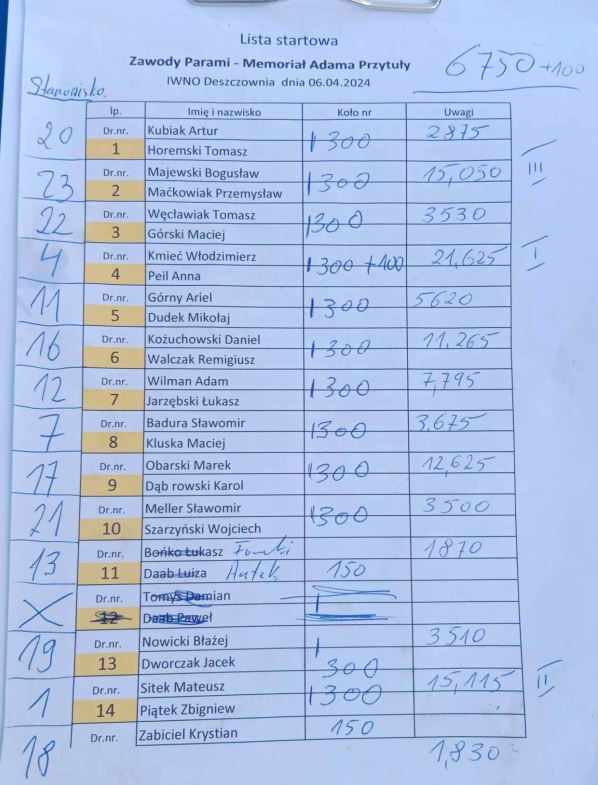 Lista startowa
Zawody Parami - Memoriał Adama Przytuły
6750 +100
IWNO Deszczownia dnia 06.04.2024
Stanowisko
lp. Imię i nazwisko Koło nr Uwagi
20 Dr.nr. Kubiak Artur 300 2875
1 Horemski Tomasz
23 Dr.nr. Majewski Bogusław 300 15,050 III
2 Maćkowiak Przemysław
22 Dr.nr. Węcławiak Tomasz 300 3530
3 Górski Maciej
4 Dr.nr. Kmieć Włodzimierz 300 +100 21,625 I
4 Peil Anna
11 Dr.nr. Górny Ariel 300 5620
5 Dudek Mikołaj
16 Dr.nr. Kożuchowski Daniel 300 11,265
6 Walczak Remigiusz
12 Dr.nr. Wilman Adam 300 7,795
7 Jarzębski Łukasz
7 Dr.nr. Badura Sławomir 300 3,675
8 Kluska Maciej
17 Dr.nr. Obarski Marek 300 12,625
9 Dąb rowski Karol
21 Dr.nr. Meller Sławomir 300 3500
10 Szarzyński Wojciech
13 Dr.nr. Bońko Łukasz 1870
11 Daab Luiza Antek 150
X Dr.nr. Tomys Damian
12 Daab Paweł
19 Dr.nr. Nowicki Błażej 3510
13 Dworczak Jacek 300
1 Dr.nr. Sitek Mateusz 300 15,115 II
14 Piątek Zbigniew
18 Dr.nr. Zabiciel Krystian 150
1,830